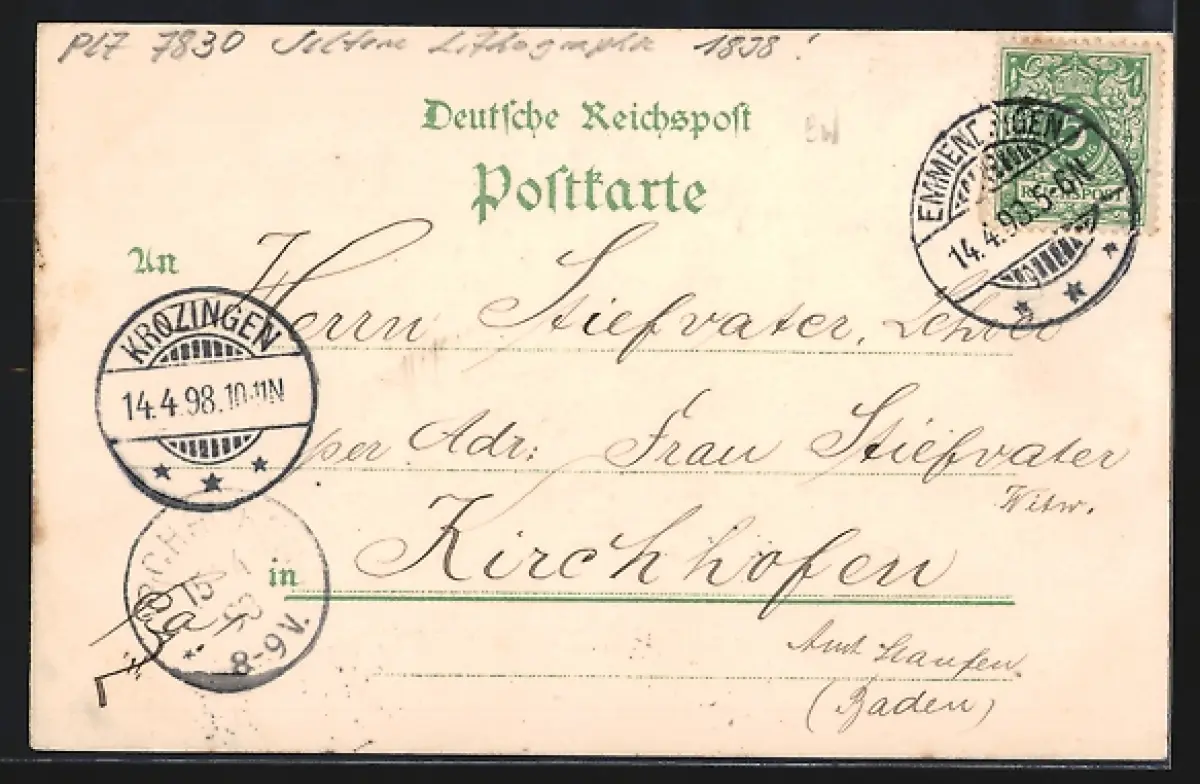 PLZ 7830 Seltene Lithographie 1898!
Deutsche Reichspost
BW
Postkarte
5
REICHSPOST
EMMENDINGEN
14.4.98.5-6N
An
Herrn Stiefvater,
KROZINGEN
14.4.98.10-11N
per Adr: Frau Stiefvater
Witw.
in Kirchhofen
15 4
98
8-9V.
Amt Staufen
(Baden)